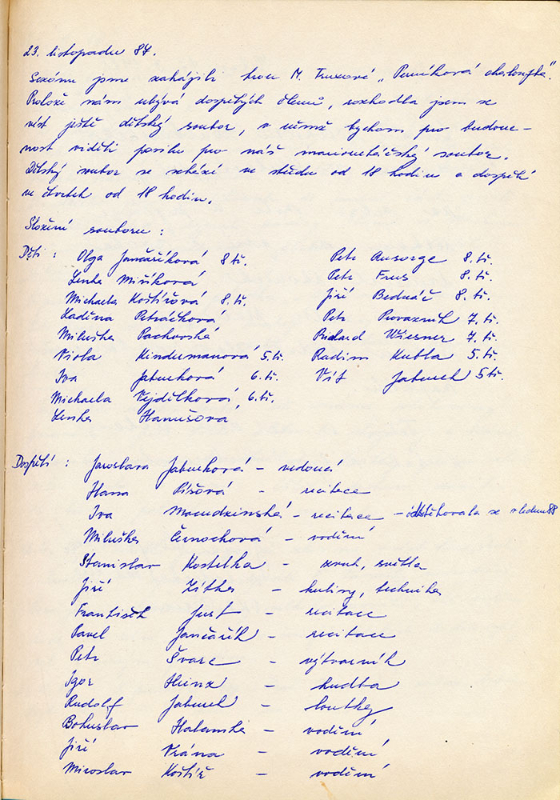 23. listopadu 84.
Sezónu jsme zahájili hrou M. Truxové „Perníková chaloupka."
Protože nám ubývá dospělých členů, rozhodla jsem se
vést ještě dětský soubor, v němž bychom pro budouc-
nost viděli posilu pro náš marionetářský soubor.
Dětský soubor se schází ve středu od 18 hodin a dospělí
ve čtvrtek od 18 hodin.
Složení souboru:
Děti: Olga Jančaříková 8.tř. Petr Ansorge 8.tř.
Lenka Miříková Petr Frus 8.tř.
Michaela Koštířová 8.tř. Jiří Bednář 8.tř.
Naděna Petráčková Petr 7.tř.
Miluška Pachovská Richard Wiesner 7.tř.
Viola Kindermanová 5.tř. Radim Kubla 5.tř.
Iva Jabůrková 6.tř. Vít Jabůrek 5tř.
Michaela Vejdělková 6.tř.
Lenka Hanušová
Dospělí: Jaroslava Jabůrková – vedoucí
Hana Píšová – recitace
Iva – recitace – odstěhovala se v lednu 88
Miluška Černochová – vodění
Stanislav Kostelka – zvuk, světla
Jiří Zítka – kulisy, technika
František Just – recitace
Pavel Jančařík – recitace
Petr Švarc – výtvarník
Igor Heinz – hudba
Rudolf Jabůrek – loutky
Bohuslav Hatanski – vodění
Jiří Vrána – vodění
Miroslav Koštíř – vodění